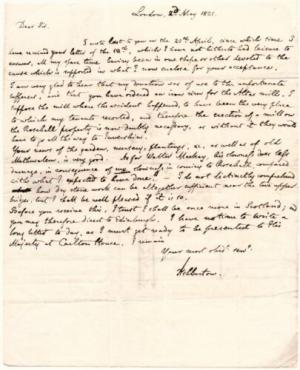 London, 2d May 1821.
Dear Sir,
I now last to you on the 20th April, since which time I
have received your letter of the 18th, which I have not hitherto had leisure to
answer, All my spare time having been in one shape or other devoted to the
cause which is reported in what I now enclose for your acceptance.
I am very glad to hear that my donation was of use to the unfortunate
and that you have ordered an iron river for the Atlas mill, I
suppose the mill where the accident happened, to have been the very place
to which my tenants resorted, and therefore the erection of a mill on
the Rosehall property is most doubly necessary, as without it they would
have to go all the way to Invershin.
Your account of the gardens, nursery, plantings, &c, as well as of old
is very good. As for Walter Mackay, his
in consequence of my coming to Rosehall
with what I expected to have done. I do not distinctly comprehend
how dry stone work can be altogether sufficient near the two upper
bridges, but I shall be well pleased if it is so.
Before you receive this, I trust I shall be once more in Scotland; so
you may therefore direct to Edinburgh. I have no time to write a
long letter to day, as I must get ready to be presented to His
Majesty at Carlton House. I remain
Your most obdt. servt.